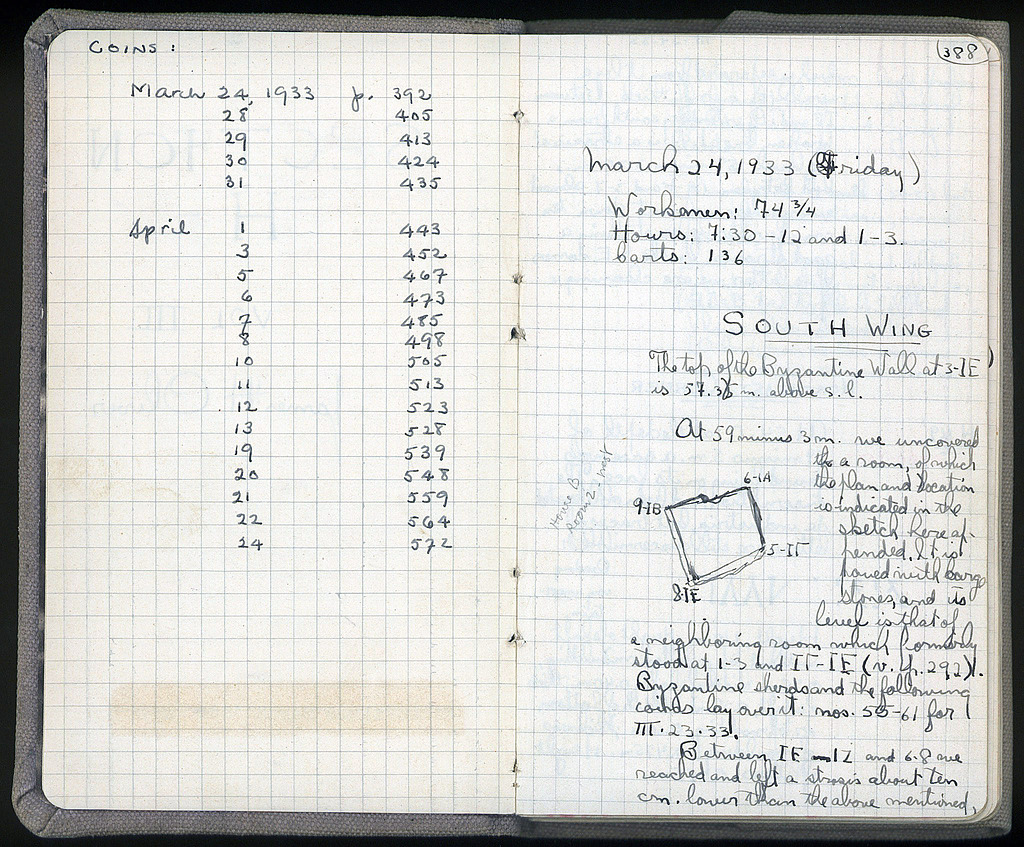 COINS:
March 24, 1933 p. 392
28 405
29 413
30 424
31 435
April 1 443
3 452
5 467
6 473
7 485
8 498
10 505
11 513
12 523
13 528
19 539
20 548
21 559
22 564
24 572
388
March 24, 1933 (Friday)
Workmen: 74 3/4
Hours: 7:30 - 12 and 1 - 3.
Carts: 136
SOUTH WING
The top of the Byzantine Wall at 3-IE
is 57.35 m. above s.l.
At 59 minus 3 m. we uncovered
a room, of which
the plan and location
is indicated in the
sketch here ap-
pended. It is
paved with large
stones, and its
level is that of
6-IA
9-IB
5-IΓ
8-IE
House B
Room 2
a neighboring room which formerly
stood at 1-3 and IΓ-IE (v. p. 292).
Byzantine sherds and the following
coins lay over it: nos. 55-61 for
III.23.33.
Between IE - IZ and 6-8 we
reached and left a strosis about ten
cm. lower than the above mentioned,